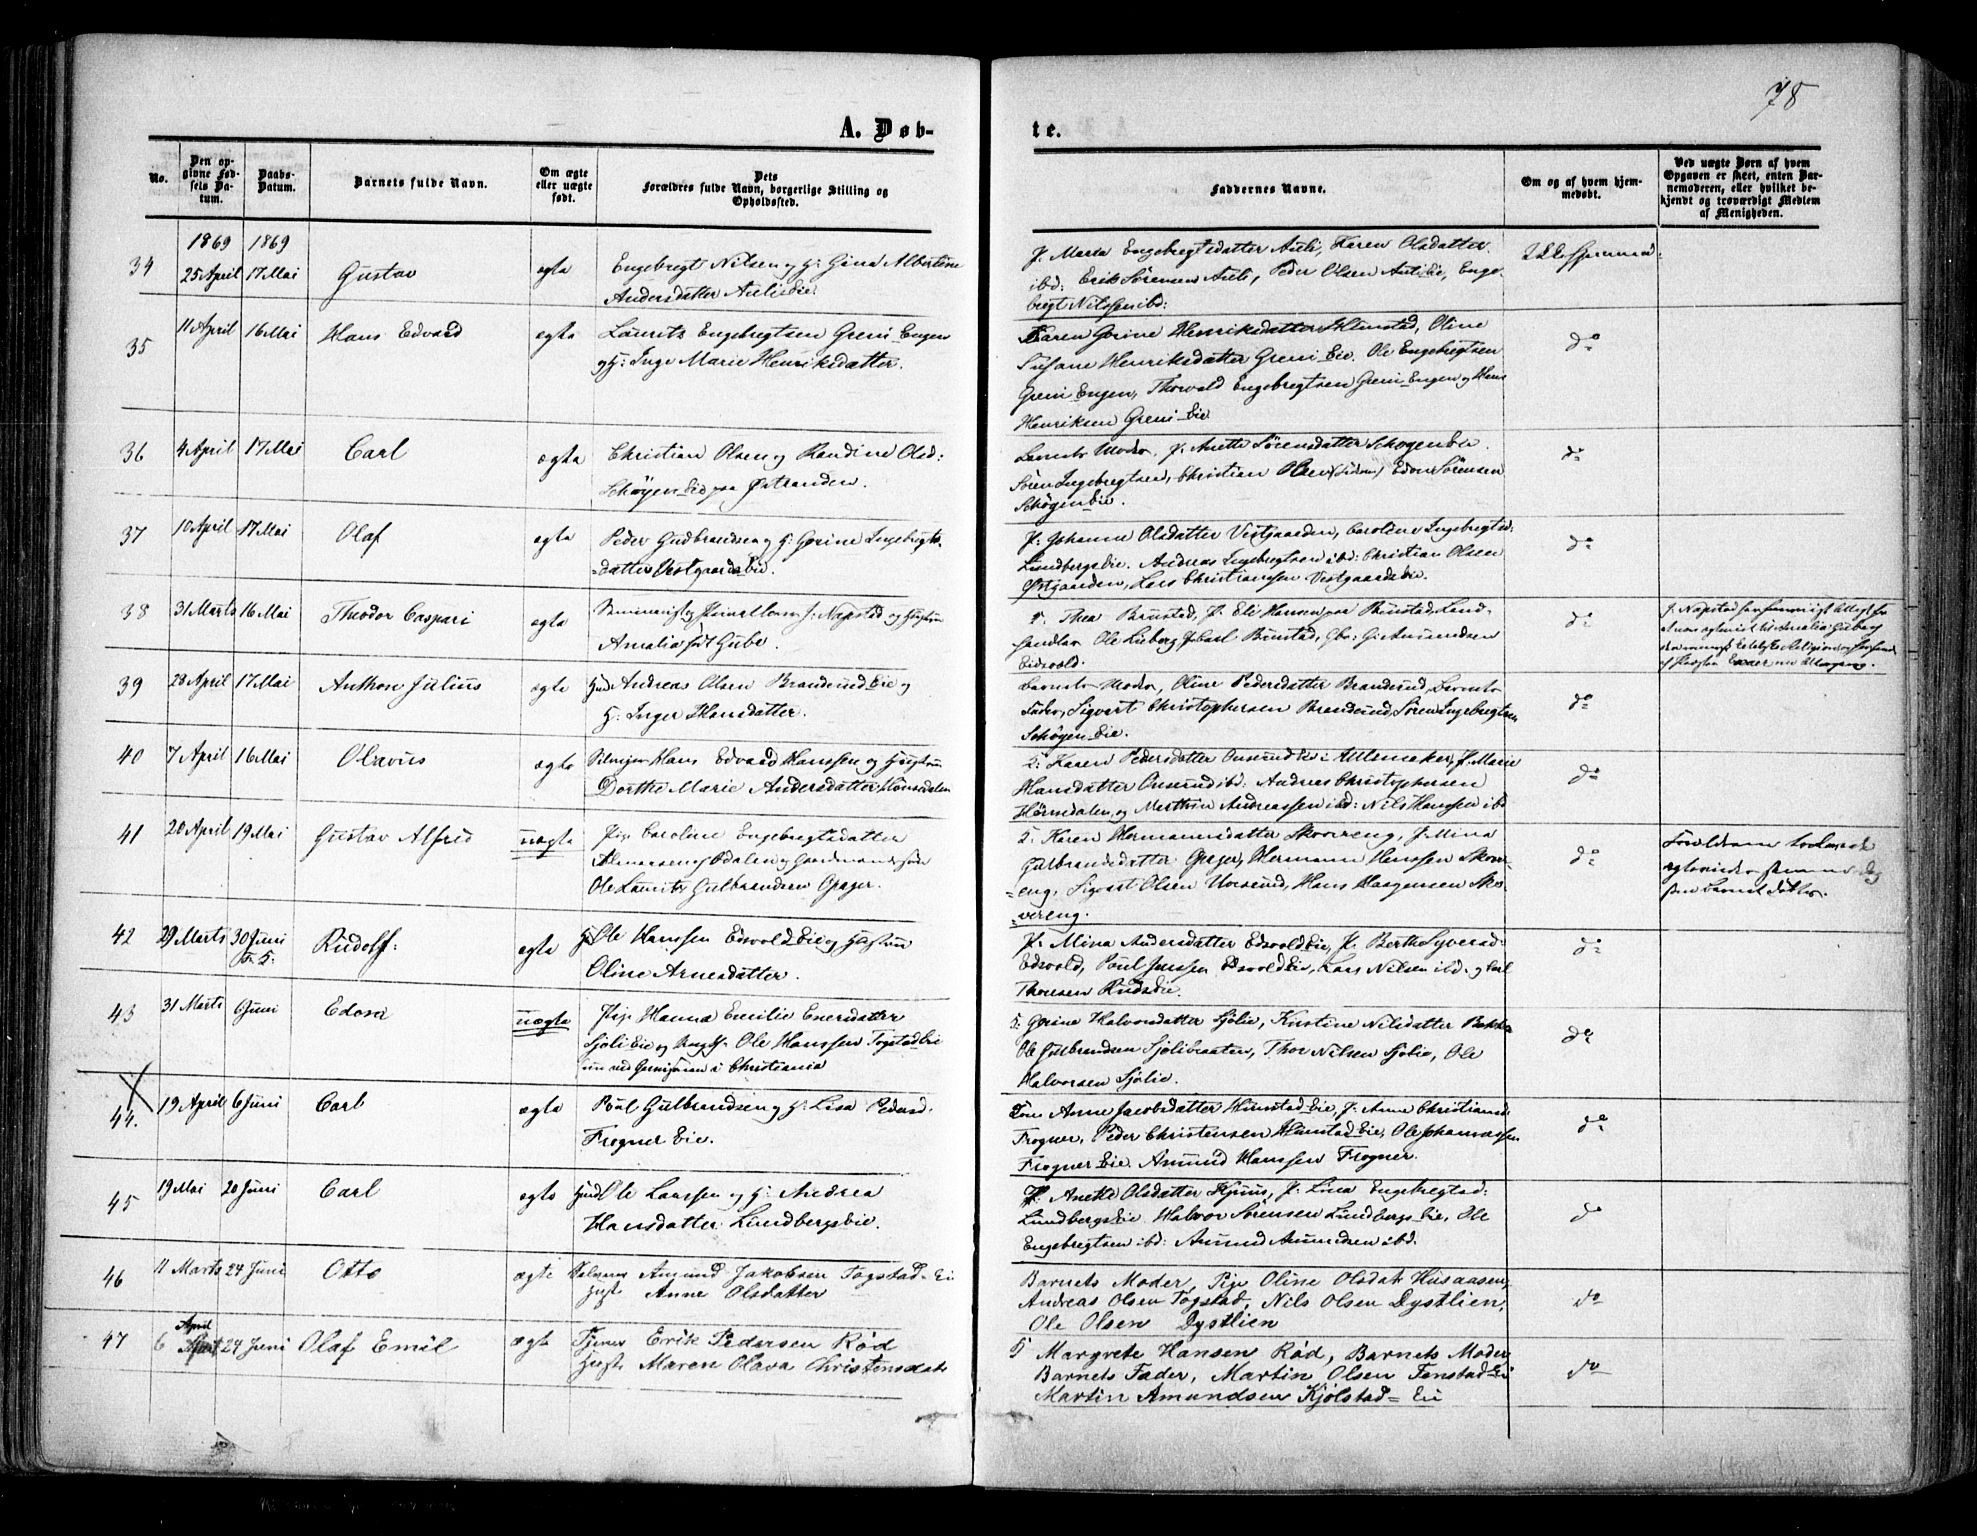 78
A. Døb-
te.
No.
Den op-
givne Fød-
sels Da-
tum.
Daabs-
Datum.
Barnets fulde Navn.
Om ægte
eller uægte
født.
Dets
Forældres fulde Navn, borgerlige Stilling og
Opholdssted.
Faddernes Navne.
Om og af hvem hjem-
medøbt.
Ved uægte Børn af hvem
Opgaven er skeet, enten Bar-
nemoderen, eller hvilket be-
kjendt og troværdigt Medlem
af Menigheden.
1869 1869
34 25 April 17 Mai Gustav ægte
Engebregt Nilsen og H: Gina Albertine
Andersdatter Aulieie.
P. Maria Engebregtsdatter Auli, Karen Olsdatter
ibd: Erik Sörensen Auli, Peder Olsen Aulieie, Enge-
bregt Nilssen ibd:
35 11 April 16 Mai Hans Edvard ægte
Laurits Engebregtsen Greni Engen
og H: Inge Marie Henriksdatter.
Karen Gorine Henriksdatter Himstad, Oline
Susane Henriksdatter Greni Eie. Ole Engebregtsen
Greni Engen, Thorvald Engebregtsen Greni Engen og Hans
Henriksen Greni Eie
do
36 4 April 17 Mai Carl ægte
Christian Olsen og Randine Olsd:
Schøyen Eie paa
Barnets Moder. P. Anette Sörensdatter Schøgen Eie
Sören Ingebregtsen, Christian Olsen Edvon Sörensen
Schögen Eie.
do
37 10 April 17 Mai Olaf ægte
Peder Gudbrandsen og H: Gorine Ingebregts-
datter Vestgaards Eie.
P. Johanne Olsdatter Vestgaarden, Caroline Ingebregtsd:
Lundbergs Eie. Andreas Ingebregtsen ibd: Christian Olsen
Østgaarden, Lars Christianssen Vestgaards Eie.
do
38 31 Marts 16 Mai Theodor Caspari ægte
J: Napstad og Hustru
Amalia født Gube.
Thea Brustad, P. Eli Hansen paa Brustad, Land-
handler Ole Liberg, Carl Brustad, G. Amundsen
Eidsvold.
do
39 28 April 17 Mai Anthon Julius ægte
Andreas Olsen Branderud Eie og
H: Inger Hansdatter.
Barnets Moder, Oline Pedersdatter Branderud, Barnets
Fader, Sigvart Christophersen Branderud, Sören Ingebregtsen
Schögen Eie.
do
40 7 April 16 Mai Olavus ægte
Hans Edvard Hanssen og Hustru
Dorthe Marie Andersdatter Hönsedalen
2: Karen Pedersdatter i Ullensaker, P. Marie
Hansdatter ibd: Andreas Christophersen
Hönsdalen, og Merthin Andreassen ibd: Nils Hanssen ibd
do
41 20 April 19 Mai Gustav Alfred uægte
Pige Caroline Engebregtsdatter
Odalen og
Ole Laurits Gulbrandsen Opager.
2: Karen Hermannsdatter Skovreng, P. Mina
Gulbrandsdatter Opager, Hermann Hanssen Skov-
reng, Sigvart Olsen, Hans Haagensen Sko-
vereng.
do
42 29 Marts 30 Juni Rudolf: ægte
Ole Hanssen Edsvold Eie og Hustru
Oline Arnesdatter.
P. Mina Andersdatter Edsvold Eie, P. Berthe Syversd:
Edsvold, Poul Jenssen Edsvold Eie, Lars Nilsen ibd. og Carl
Thoresen Ruds Eie.
do
43 31 Marts 6 Juni uægte
Pige Hanna Emilie Enersdatter
Sjöli Eie og Ungk. Ole Hanssen Togstad Eie
nu ved i Christiania
5: Gorine Halvorsdatter Sjölie, Kristine Nilsdatter
Ole Gulbrandsen Sjölibraaten, Thor Nilsen Sjölie, Ole
Halvorsen Sjölie.
do
44. 19 April 6 Juni Carl ægte
Poul Gulbrandsen og H: Lisa Pedersd.
Frogner Eie.
Anne Jacobsdatter Himstad Eie, P. Anne Christiansd:
Frogner, Peder Christensen Himstad Eie, Ole Johannessen
Frogner Eie. Amund Hanssen Frogner.
do
45 19 Mai 20 Juni Carl ægte
Ole Larssen og H: Andrea
Hansdatter Lundbergs Eie.
P. Anette Olsdatter Hjuus, P: Lina Engebregtsd:
Lundbergs Eie Halvor Sörensen Lundbergs Eie, Ole
Engebregtsen ibd: Amund Amundsen ibd.
do
46 11 Marts 24 Juni Otto ægte
Amund Jakobsen Togstad-Ei
Hust: Anne Olsdatter
Barnets Moder, Pige Oline Olsdat Husaasen,
Andreas Olsen Togstad, Nils Olsen Dystlien,
Ole Olsen Dystlien
do
47 6 April 24 Juni Olaf Emil ægte
Tjener Erik Pedersen Rød
Hust: Maren Olava Christensdat
5 Margrete Hansen Rød, Barnets Moder,
Barnets Fader, Martin Olsen Tenstad Ei
Martin Amundsen Kjölstad-Eie
do